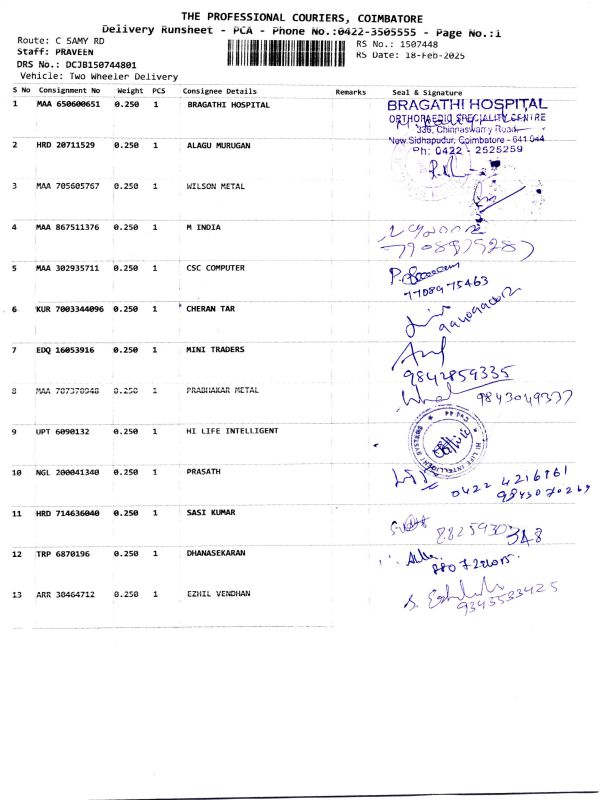 THE PROFESSIONAL COURIERS, COIMBATORE
Delivery Runsheet - PCA - Phone No.:0422-3505555 - Page No.:1
Route: C SAMY RD
RS No.: 1507448
Staff: PRAVEEN
RS Date: 18-Feb-2025
DRS No.: DCJB150744801
Vehicle: Two Wheeler Delivery
S No Consignment No Weight PCS Consignee Details Remarks Seal & Signature
1 MAA 650600651 0.250 1 BRAGATHI HOSPITAL
BRAGATHI HOSPITAL
ORTHOPAEDIC SPECIALITY CENTRE
336, Chinnaswamy Road,
New Sidhapudur, Coimbatore - 641 044
Ph: 0422 - 2525259
2 HRD 20711529 0.250 1 ALAGU MURUGAN
3 MAA 705605767 0.250 1 WILSON METAL
4 MAA 867511376 0.250 1 M INDIA
5 MAA 302935711 0.250 1 CSC COMPUTER
7708975463
6 KUR 7003344096 0.250 1 CHERAN TAR
7 EDQ 16053916 0.250 1 MINI TRADERS
9842859335
8 MAA 707370948 0.250 1 PRABHAKAR METAL
9843049337
9 UPT 6090132 0.250 1 HI LIFE INTELLIGENT
HI LIFE INTELLIGENT SYSTEMS
10 NGL 200041340 0.250 1 PRASATH
0422 4216161
9843070269
11 HRD 714636040 0.250 1 SASI KUMAR
12 TRP 6870196 0.250 1 DHANASEKARAN
13 ARR 30464712 0.250 1 EZHIL VENDHAN
9343533425